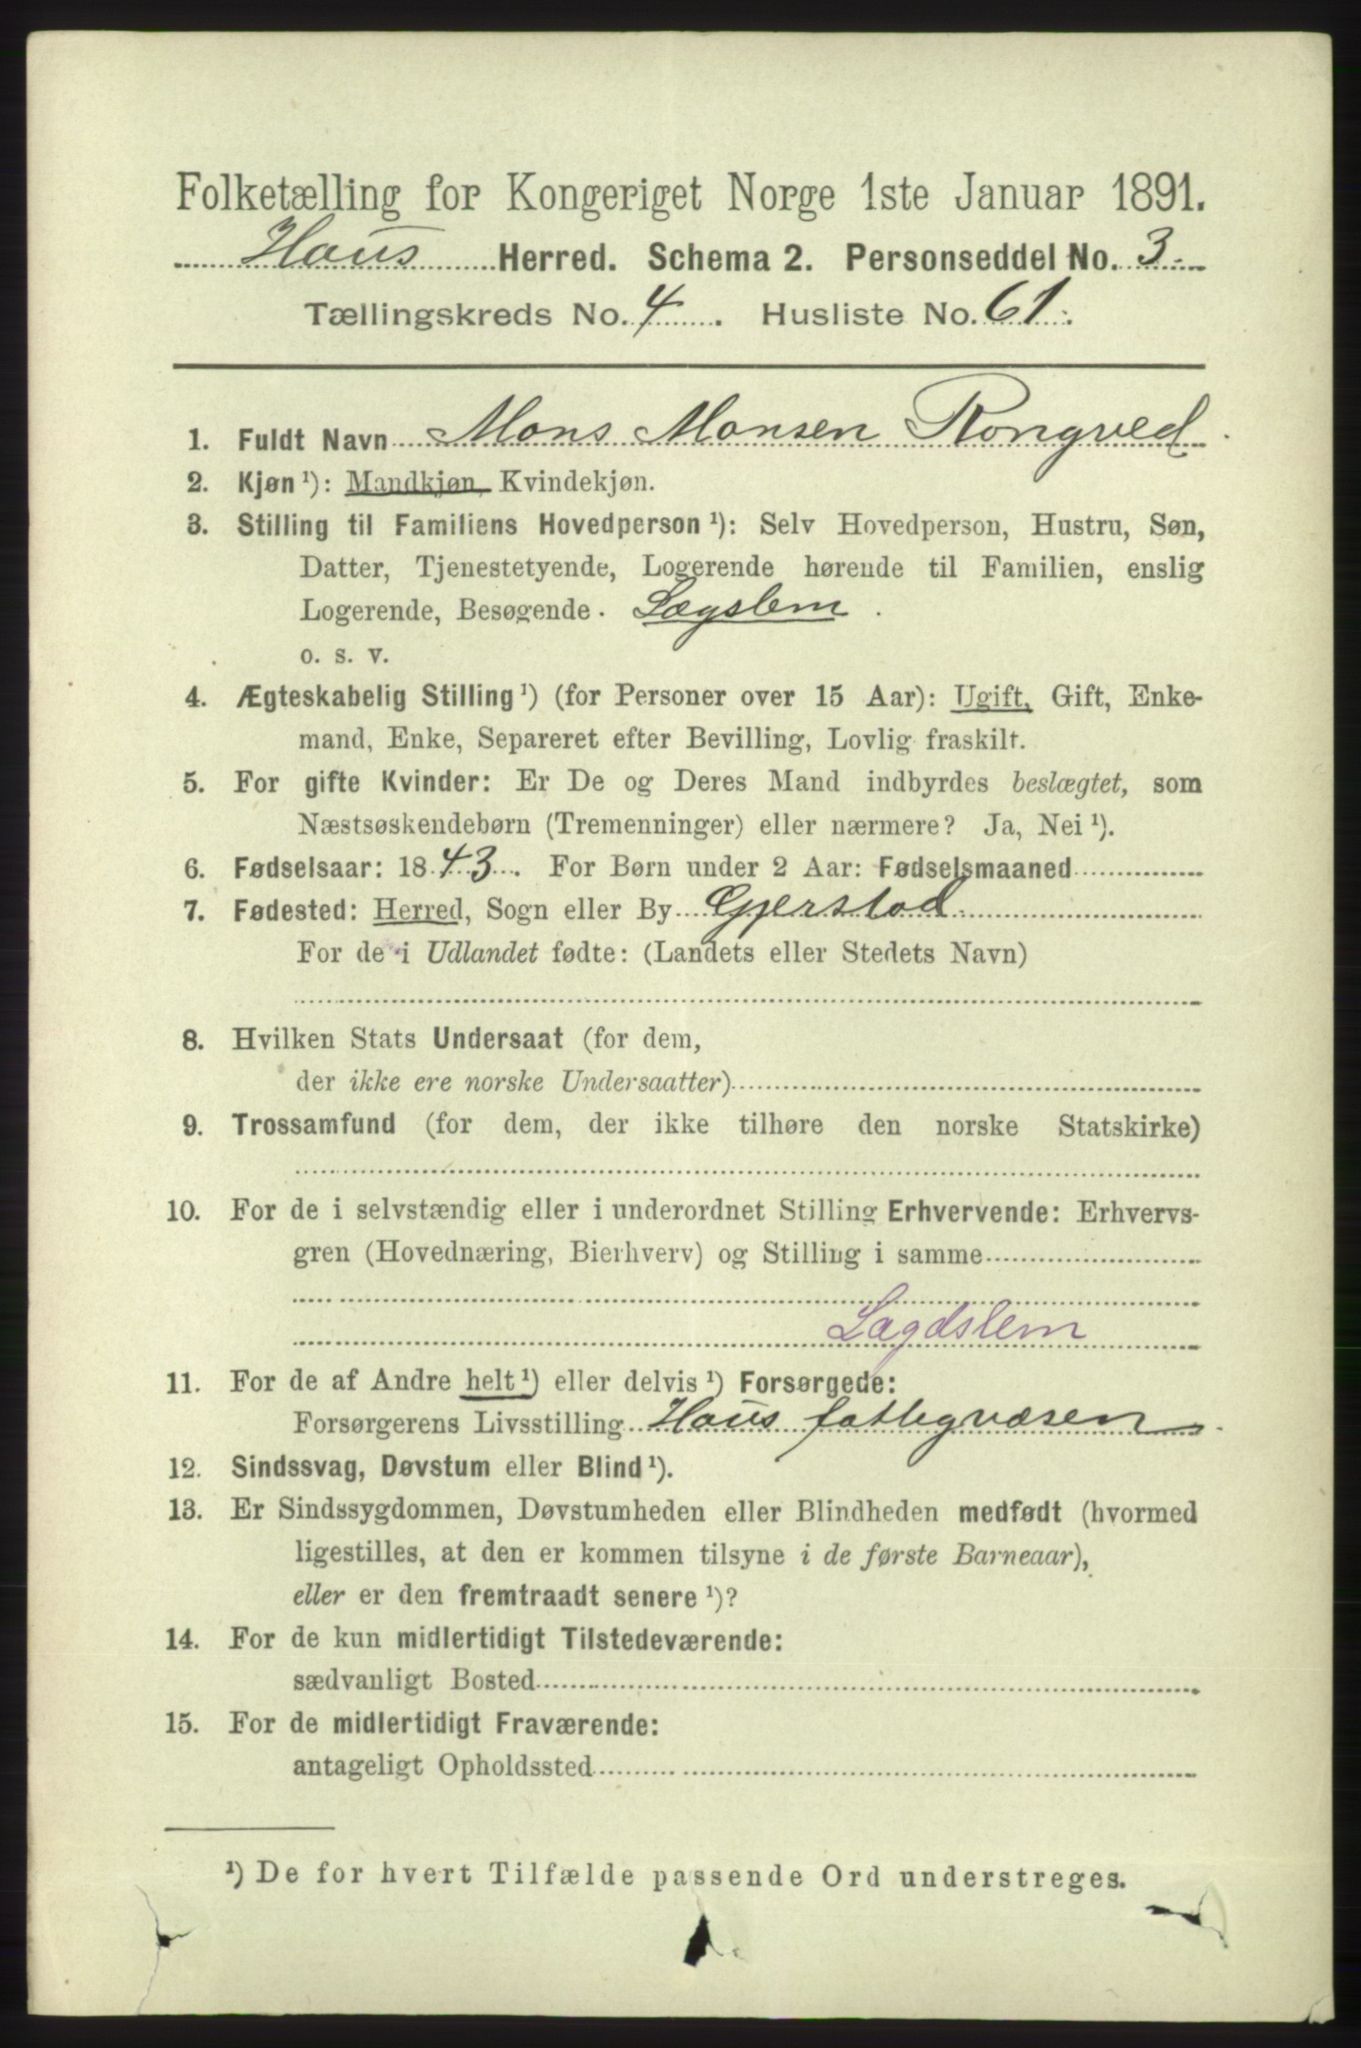 Folketælling for Kongeriget Norge 1ste Januar 1891.
Haus Herred. Schema 2. Personseddel No. 3.
Tællingskreds No. 4. Husliste No. 61.
1. Fuldt Navn Mons Monsen Rongved.
2. Kjøn ¹): Mandkjøn, Kvindekjøn.
3. Stilling til Familiens Hovedperson ¹): Selv Hovedperson, Hustru, Søn,
Datter, Tjenestetyende, Logerende hørende til Familien, enslig
Logerende, Besøgende. Lægslem.
o. s. v.
4. Ægteskabelig Stilling ¹) (for Personer over 15 Aar): Ugift, Gift, Enke-
mand, Enke, Separeret efter Bevilling, Lovlig fraskilt.
5. For gifte Kvinder: Er De og Deres Mand indbyrdes beslægtet, som
Næstsøskendebørn (Tremenninger) eller nærmere? Ja, Nei ¹).
6. Fødselsaar: 1843. For Børn under 2 Aar: Fødselsmaaned
7. Fødested: Herred, Sogn eller By Gjerstad.
For de i Udlandet fødte: (Landets eller Stedets Navn)
8. Hvilken Stats Undersaat (for dem,
der ikke ere norske Undersaatter)
9. Trossamfund (for dem, der ikke tilhøre den norske Statskirke)
10. For de i selvstændig eller i underordnet Stilling Erhvervende: Erhvervs-
gren (Hovednæring, Bierhverv) og Stilling i samme
Lægdslem
11. For de af Andre helt ¹) eller delvis ¹) Forsørgede:
Forsørgerens Livsstilling Haus fattigvæsen.
12. Sindssvag, Døvstum eller Blind ¹).
13. Er Sindssygdommen, Døvstumheden eller Blindheden medfødt (hvormed
ligestilles, at den er kommen tilsyne i de første Barneaar),
eller er den fremtraadt senere ¹)?
14. For de kun midlertidigt Tilstedeværende:
sædvanligt Bosted
15. For de midlertidigt Fraværende:
antageligt Opholdssted
¹) De for hvert Tilfælde passende Ord understreges.